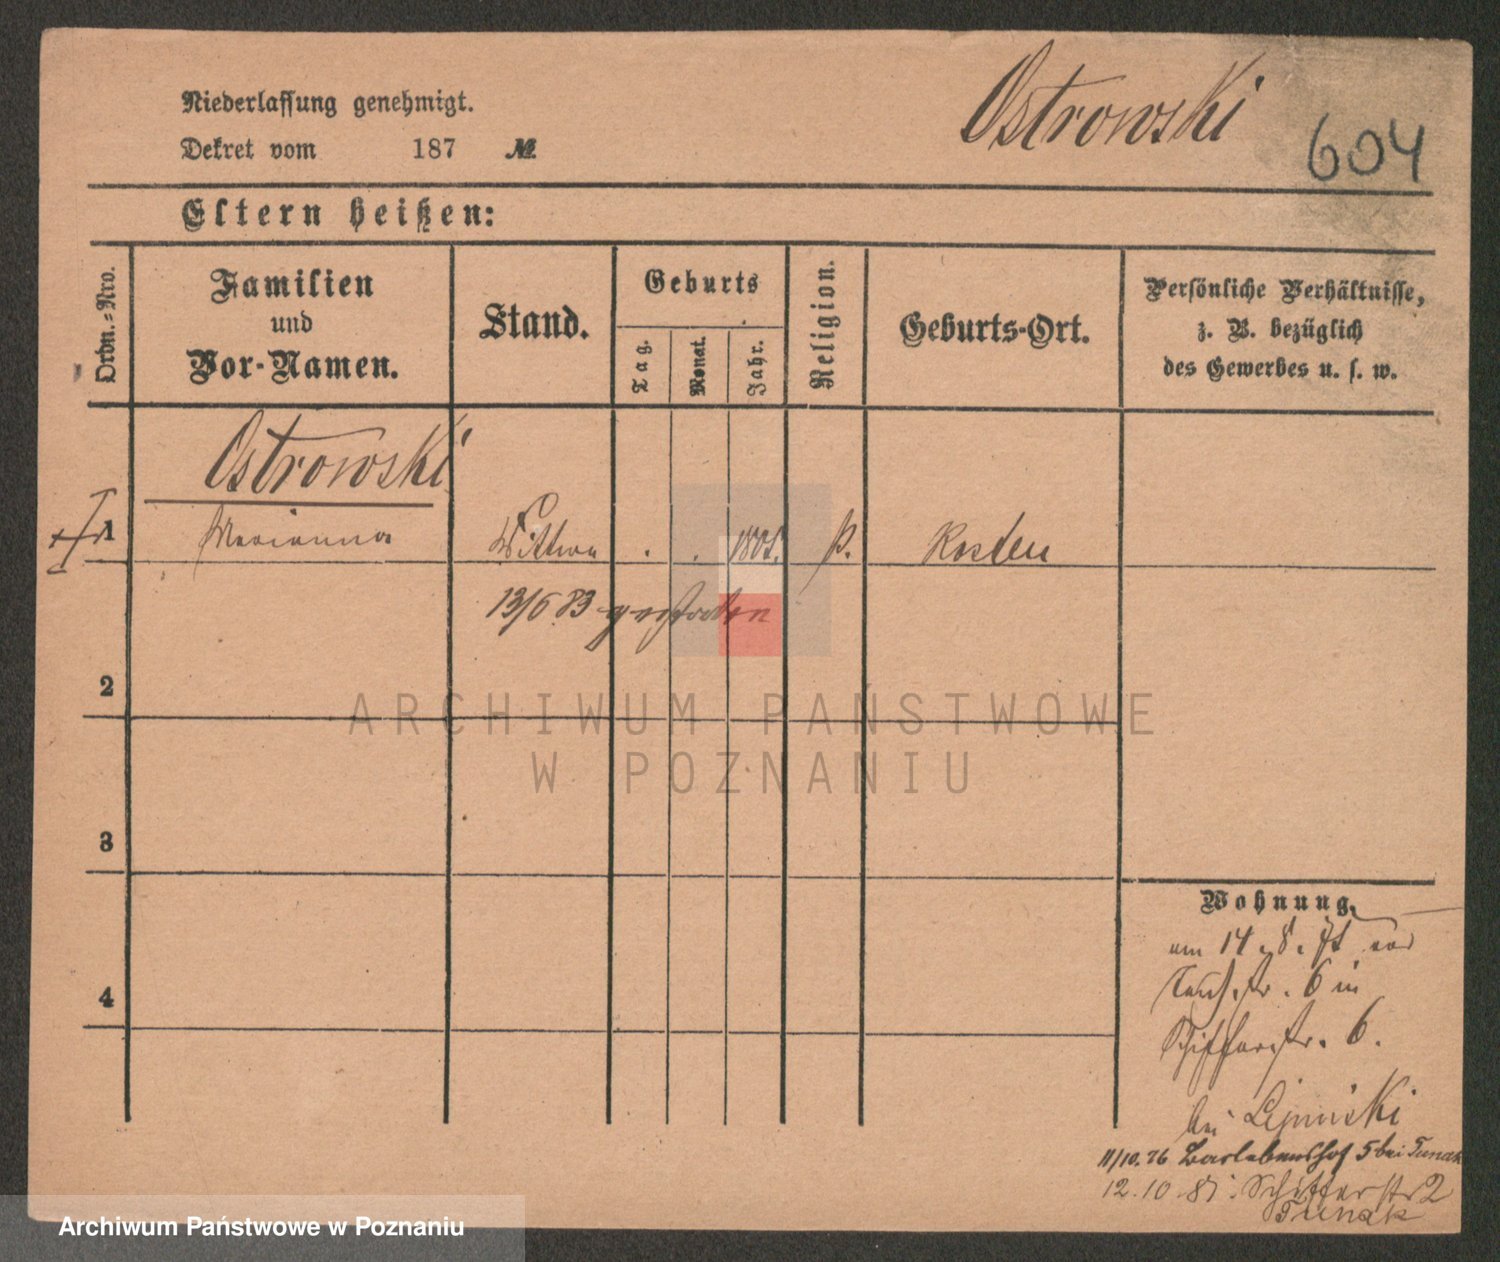 Ostrowski
604
Niederlassung genehmigt.
Dekret vom 187 №
Eltern heißen:
Ordn.-Nro.
Familien
und
Vor-Namen.
Stand.
Geburts
Tag.
Monat.
Jahr.
Religion.
Geburts-Ort.
Persönliche Verhältnisse,
z. B. bezüglich
des Gewerbes u. s. w.
Ostrowski
1 Marianna Wittwe . . 1801. k. Kosten
13/6 83 gestorben
2
3
4
Wohnung.
am 14. 8. von
6 in
Schifferstr. 6.
bei
11/10. 76 Bartlebenshof 5 bei Tunak
12.10.81. Schifferstr 2
Tunak
ARCHIWUM PAŃSTWOWE
W POZNANIU
Archiwum Państwowe w Poznaniu